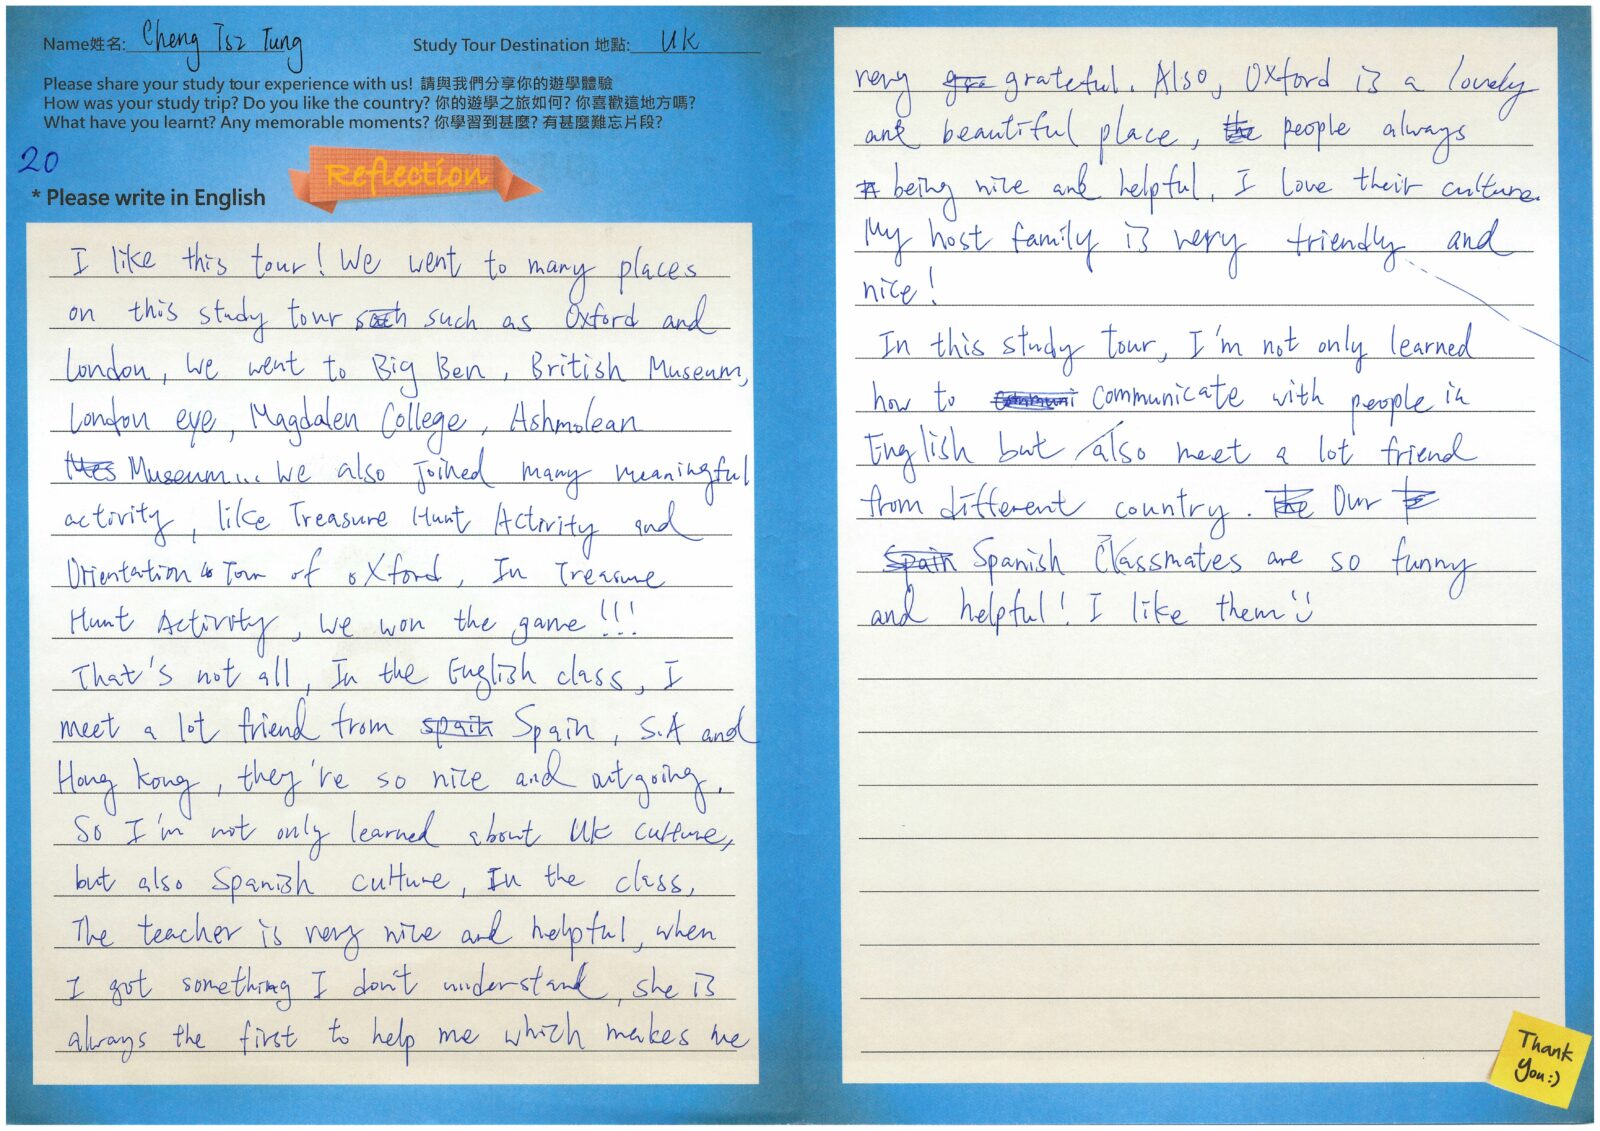 Name姓名: Cheng Tsz Tung
Study Tour Destination 地點: UK
Please share your study tour experience with us! 請與我們分享你的遊學體驗
How was your study trip? Do you like the country? 你的遊學之旅如何? 你喜歡這地方嗎?
What have you learnt? Any memorable moments? 你學習到甚麼? 有甚麼難忘片段?
20
Reflection
* Please write in English
I like this tour! We went to many places
on this study tour such as Oxford and
London, We went to Big Ben, British Museum,
London eye, Magdalen College, Ashmolean
Museum... We also joined many meaningful
activity, like Treasure Hunt Activity and
Orientation Tour of oXford, In Treasure
Hunt Activity, We won the game!!!
That's not all, In the English class, I
meet a lot friend from Spain, S.A and
Hong Kong, they're so nice and outgoing.
So I'm not only learned about UK culture,
but also Spanish culture, In the class,
The teacher is very nice and helpful, when
I got something I don't understand, she is
always the first to help me which makes me
very grateful. Also, Oxford is a lovely
and beautiful place, people always
being nice and helpful, I love their culture.
My host family is very friendly and
nice!
In this study tour, I'm not only learned
how to communicate with people in
English but also meet a lot friend
from different country. Our
Spanish Classmates are so funny
and helpful! I like them :)
Thank
you:)